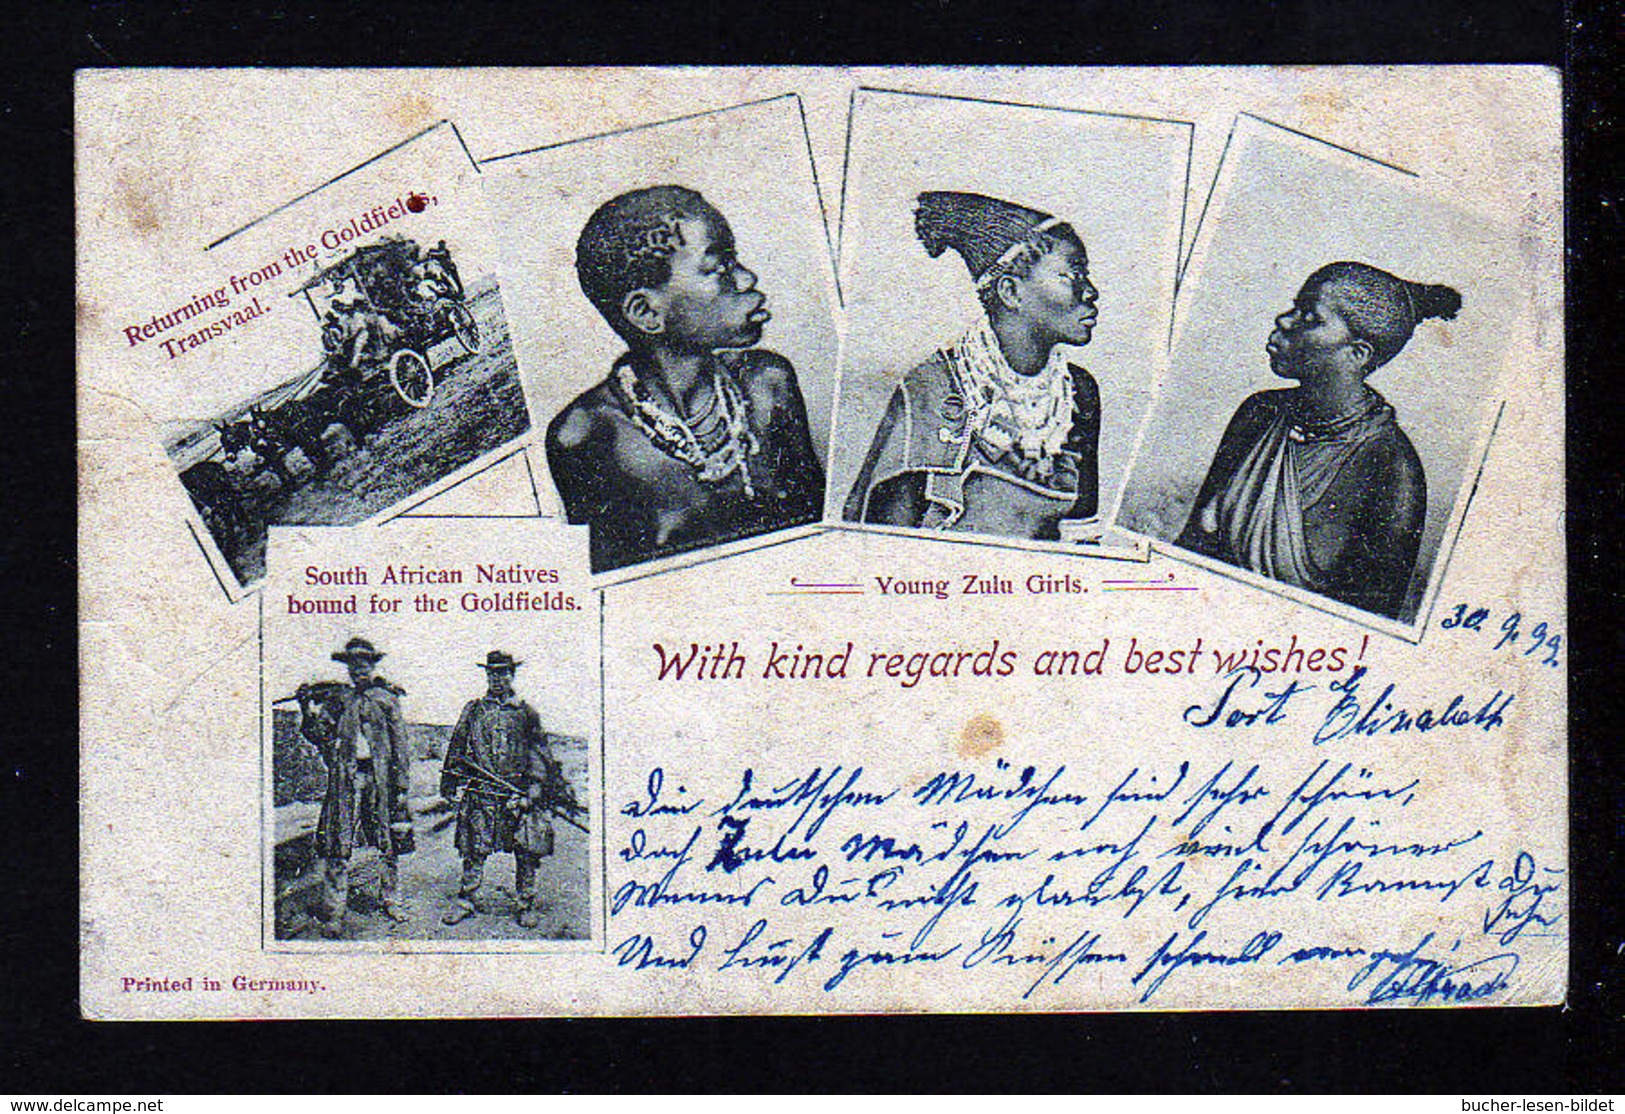 Returning from the Goldfields,
Transvaal.
South African Natives
bound for the Goldfields.
Young Zulu Girls.
With kind regards and best wishes!
30. 9. 99.
Port Elizabeth
Die deutschen Mädchen sind sehr schön,
doch Zulu Mädchen noch viel schöner
Wenns Du's nicht glaubst, hier kannst Du
sehn
Und Lust zum Küssen schnell
Printed in Germany.
delcampe.net
bucher-lesen-bildet